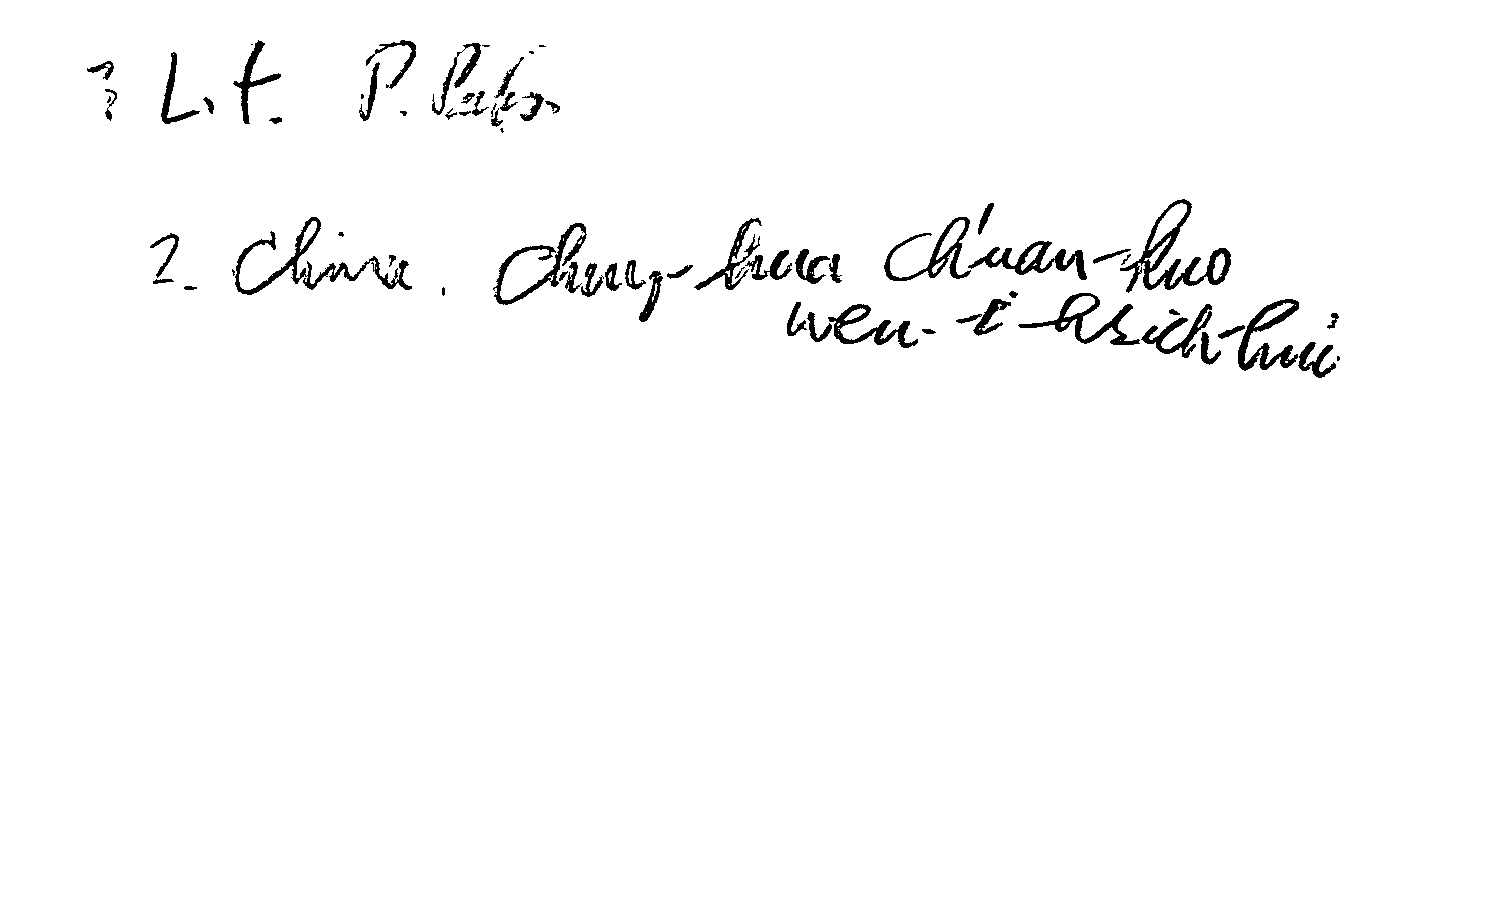 ? Lit. P.
2. China. Chung-hua Ch'uan-kuo
wen-i-hsieh-hui